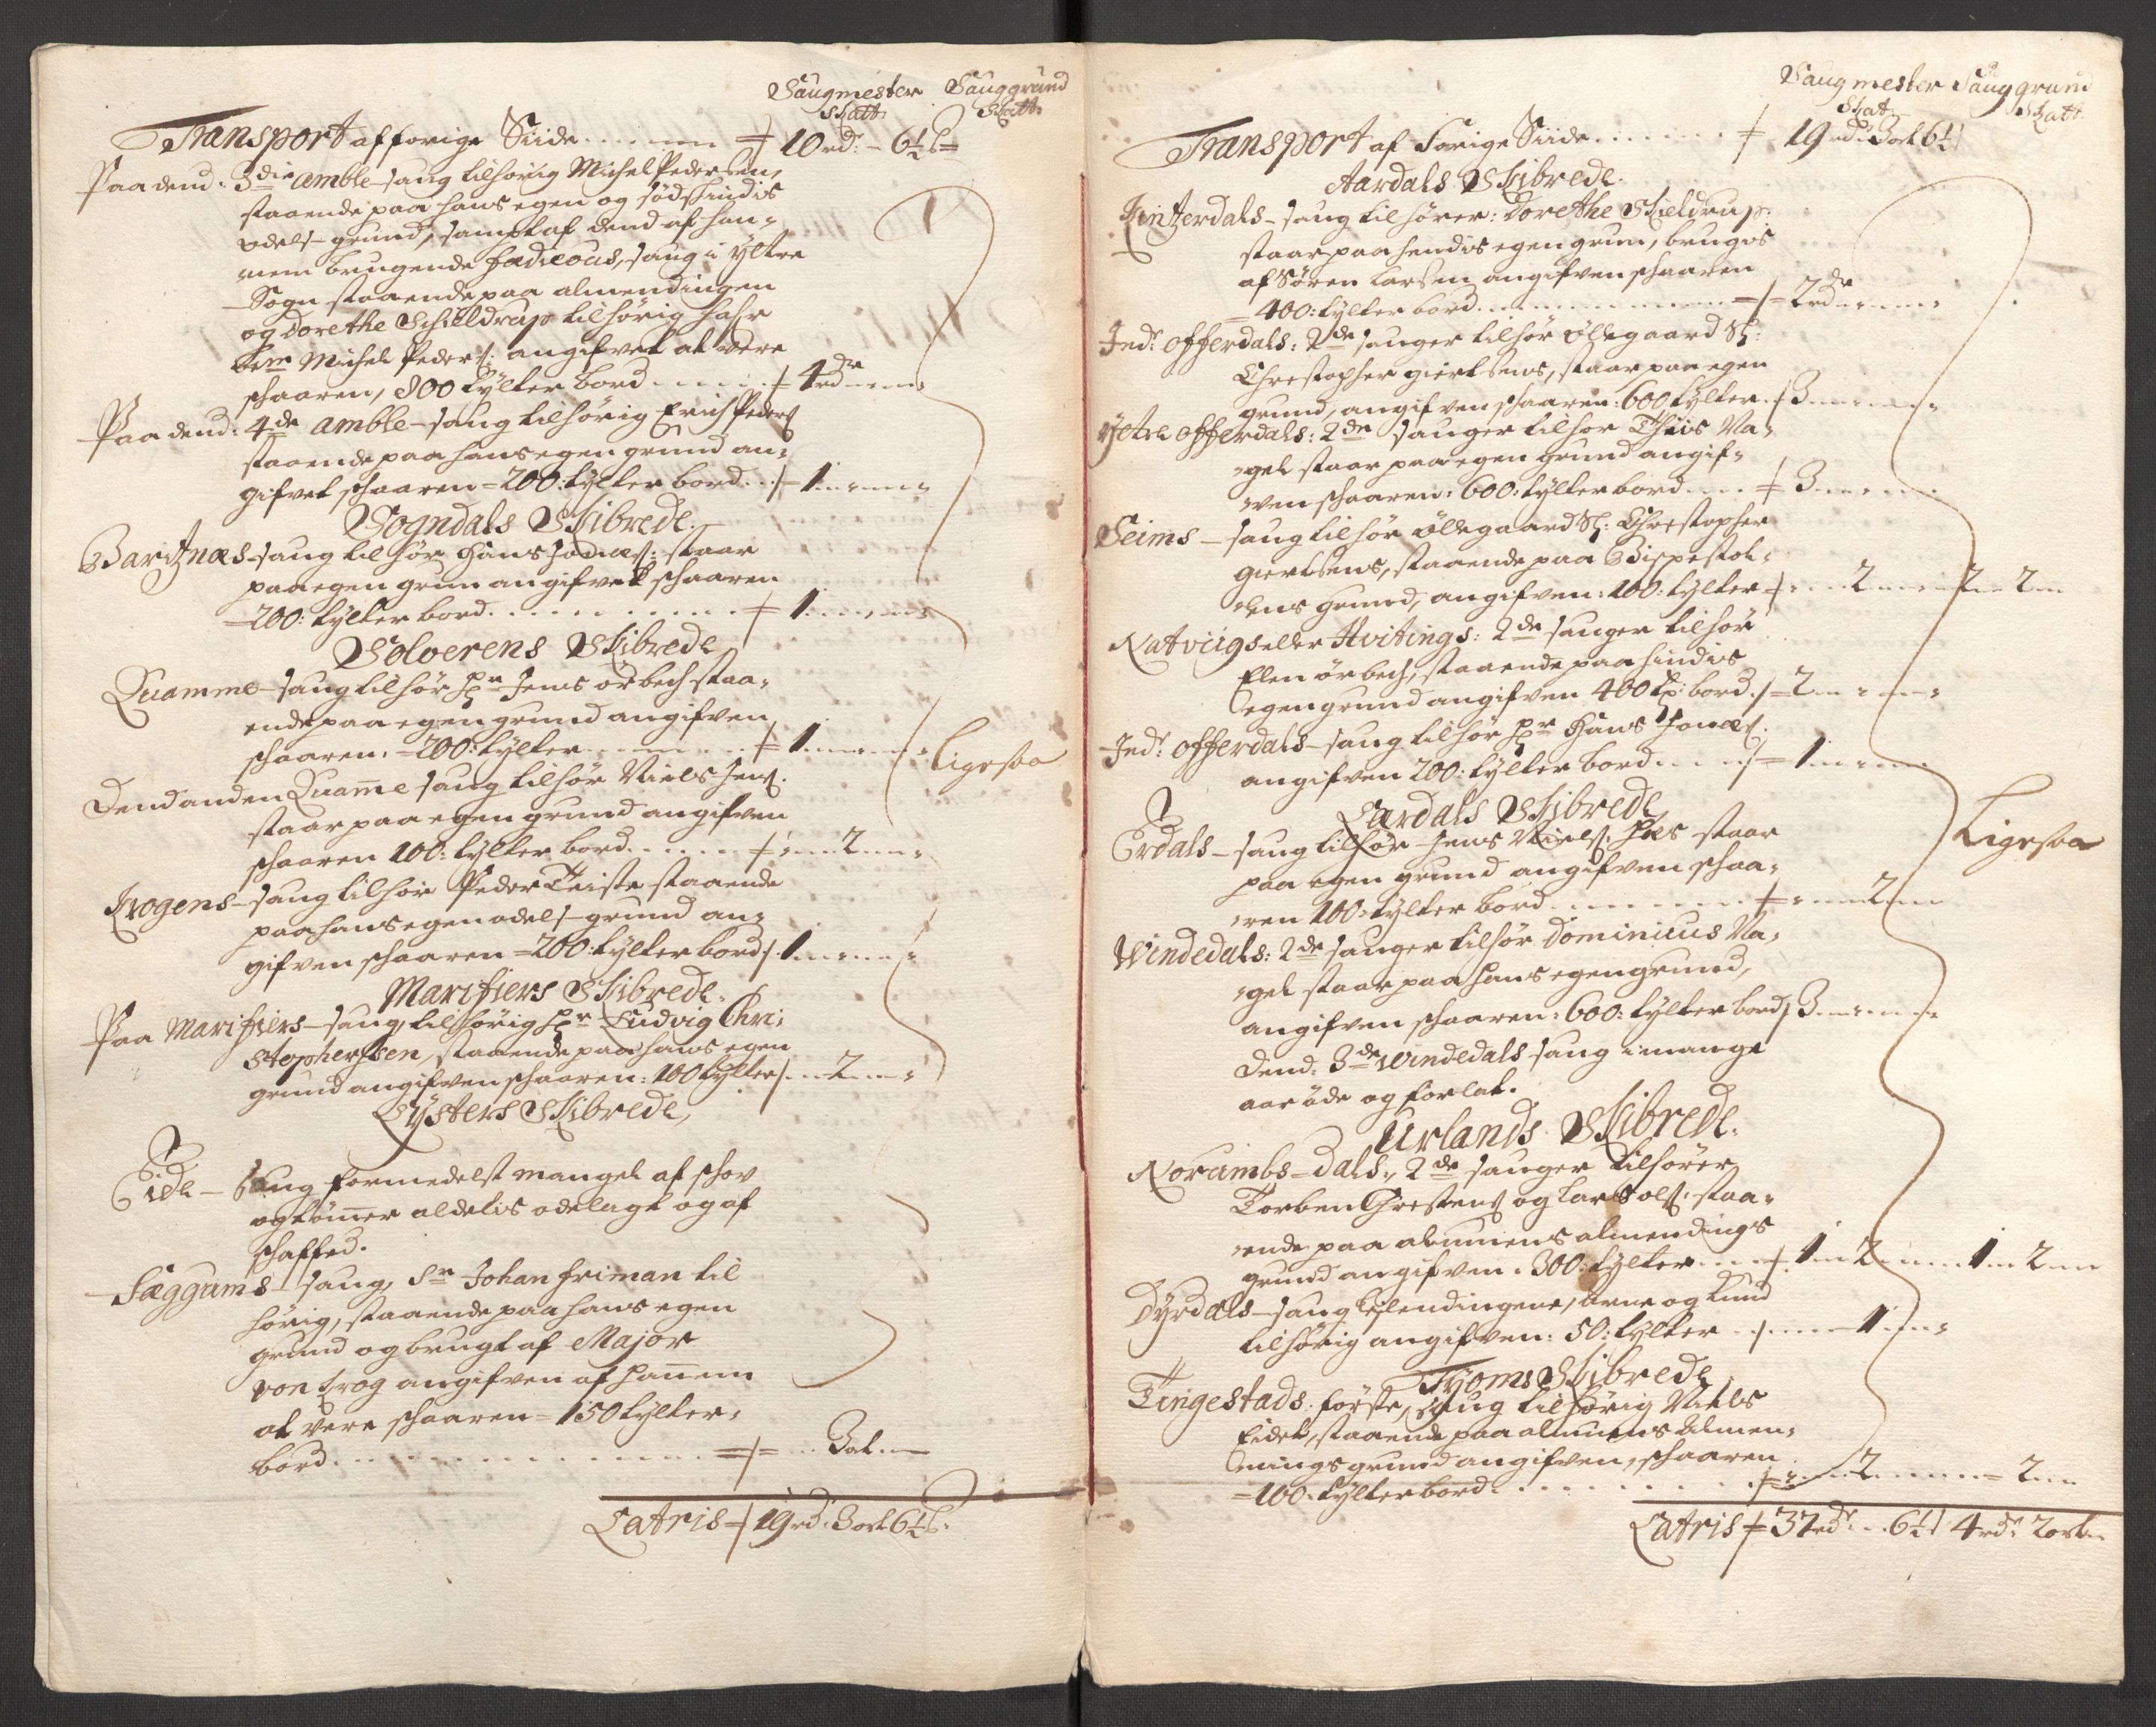 Saugmester Sauggrund
Skatt Skatt
Transport af forige Siide 10 rd: - 6½ s
Paa dend: 3die Amble saug tilhörig Michel Pedersen,
staaende paa hans egen og södskindis
odels grund, sampt af dend af han-
nem brugende saug i Yttre
Sogn staaende paa almendingen
og Dorethe Schieldrup tilhörig hafr
Michel Peders: angifvet at vere
schaaren, 800 tylter bord 4 rdr
Paa dend: 4de Amble saug tilhörig Erich Peders
staaende paa hans egen grund an-
gifvet schaaren 200: tylter bord 1
Sogndals Skibrede.
Baritznæs saug tilhör Hans Jonæs: staar
paa egen grun angifvet schaaren
200: tylter bord 1
Solverens Skibrede
Quamme saug tilhör Hr Jens Örbech staa-
ende paa egen grund angifven
schaaren 200: tylter 1
Ligesaa
Dend anden Quame saug tilhör Niels Jens.
staar paa egen grund angifven
schaaren 100: tylter bord 2
Krogens saug tilhör Peder Teiste staaende
paa hans egen odels grund an-
gifven schaaren 200: tylter bord 1
Marifiers Skibrede.
Paa Marifiers saug, tilhörig Hr Ludvig Chri-
stophersen, staaende paa hans egen
grund angifven schaaren: 100 tylter 2
Lysters Skibrede,
Eide - Saug formedelst mangel af schov
og tömer aldelis ödelagt og af
schaffed.
Fæggums saug, Sr Johan Friman til
hörig, staaende paa hans egen
grund og brugt af Major
von Krog angifven af hanem
at vere schaaren 150 tylter
bord 3 ort
Latris 19 rd: 3 ort 6½ s.
Saugmester Sauggrund
Skat Skatt
Transport af Forige Siide 19 rd: 3 ort 6½
Aardals Skibrede.
Kintzerdals saug tilhörer: Dorethe Skieldrup
staar paa hendis egen grun, bruges
af Sören Larsen angifven schaaren
400: tylter bord 2 rdr
Ind: Offerdals: 2de sauger tilhör Ollegaard Sl:
Chrestopher Giertsens, staar paa egen
grund, angifven schaaren: 600 tylter 3
Yttre Offerdals: 2de sauger tilhör Thiis Na-
gel staar paa egen grund angif-
ven schaaren: 600: tylter bord 3
Seims - saug tilhör Ollegaard Sl: Chrestopher
Giertsens, staaende paa Bispestol-
ens grund, angifven: 100: tylter 2 2 2
Natviigs eller Hvitings: 2de sauger tilhör
Elen Örbech, staaende paa hindis
egen grund angifven 400 tyl: bord 2
Ind: Offerdals saug tilhör Hr Hans Jonæs.
angifven 200: tylter bord 1
Lardals Skibrede
Erdals - saug tilhör Jens Niels: Hæs staar
paa egen grund angifven schaa-
ren 100 tylter bord 2
Ligesaa
Windedals: 2de sauger tilhör Dominicus Na-
gel staar paa hans egen grund,
angifven schaaren: 600: tylter bord 3
Dend: 3de Windedals saug i mange
aar öde og forlat.
Urlands Skibrede.
Norambs-dals, 2de sauger tilhörer
Torben Chrestens og Lars Ols: staa-
ende paa almuens almendings
grund angifven 300: tylter 1 2 1 2
Dyrdals saug Eylendingene, Arne og Knud
tilhörig angifven: 50: tylter 1
Tyoms Skibrede
Tingestads förste, saug tilhörig Niels
Eidet, staaende paa almuens Almen-
nings grund angifven, schaaren
100: tylter bord 2 2
Latris 37 rdr 6½ 4 rdr 2 ort